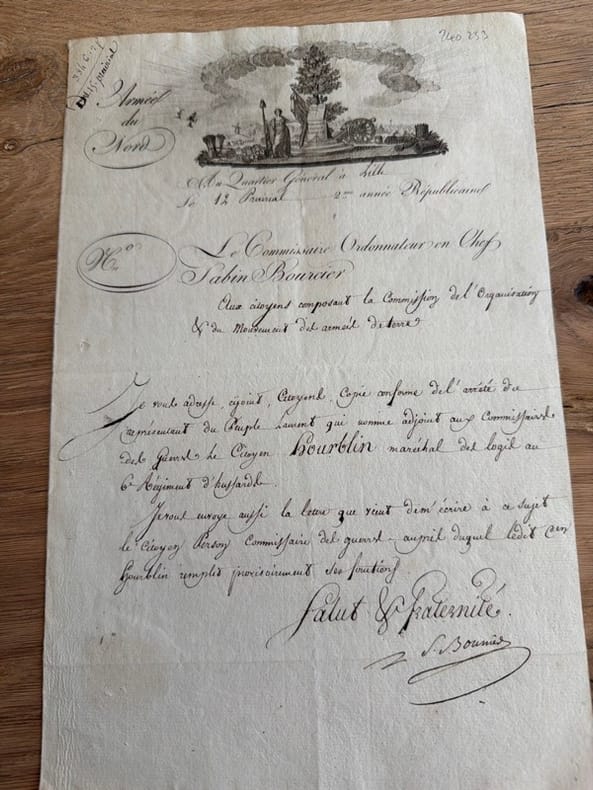 240 253
du 15 prairial
Armée
du
Nord
Au Quartier Général à Lille
Le 12 Prairial 2me année Républicaine
N.º
Le Commissaire Ordonnateur en Chef
Sabin Bourcier
Aux citoyens composant la Commission de l'Organisation
& du Mouvement des armées de terre
Je vous adresse, cijoint, Citoyens, copie conforme de l'arrêté du
représentant du Peuple Laurent qui nomme adjoint aux Commissaires
des guerres le Citoyen Hourblin maréchal des logis au
6e Régiment d'hussards.
Je vous envoye aussi la lettre que vient de m'écrire à ce sujet
le citoyen Person Commissaire des guerres auprès duquel ledit Cen
Hourblin remplit provisoirement ses fonctions
Salut & fraternité.
S. Bourcier